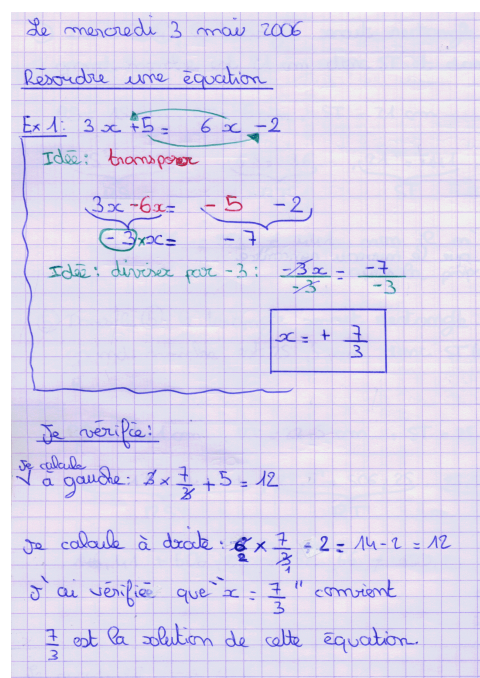 Le mercredi 3 mai 2006
Résoudre une équation
Ex 1: 3x +5 = 6x -2
Idée: transposer
3x -6x = -5 -2
-3 × x = -7
Idée: diviser par -3: -3x/-3 = -7/-3
x = + 7/3
Je vérifie:
Je calcule
à gauche: 3 × 7/3 + 5 = 12
Je calcule à droite: 6 2 × 7/3 1 - 2 = 14 - 2 = 12
J'ai vérifiée que "x = 7/3" convient
7/3 est la solution de cette équation.